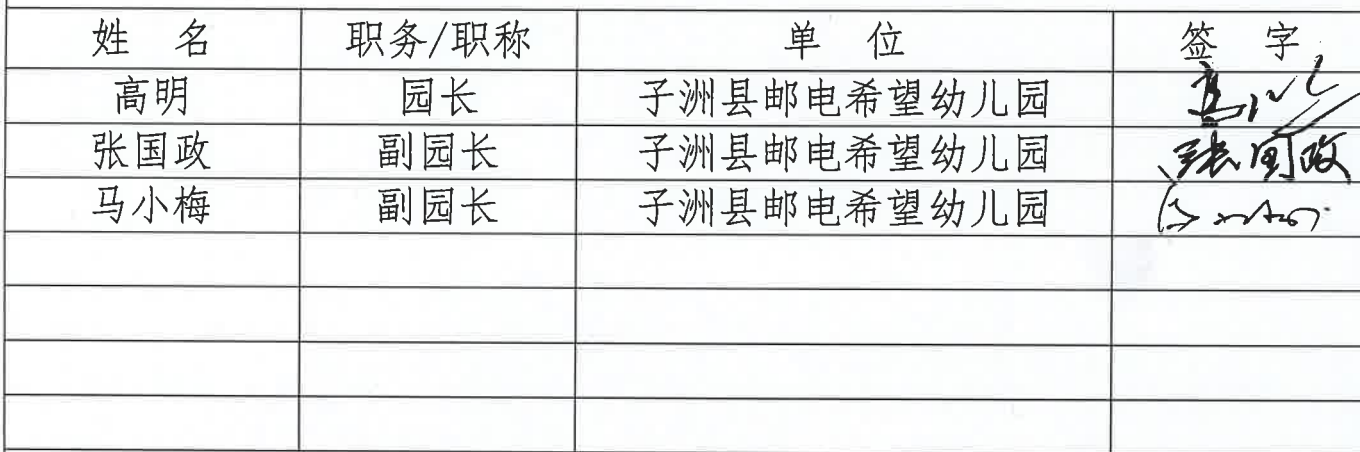 姓 名 职务/职称 单 位 签 字
高明 园长 子洲县邮电希望幼儿园
张国政 副园长 子洲县邮电希望幼儿园 张国政
马小梅 副园长 子洲县邮电希望幼儿园